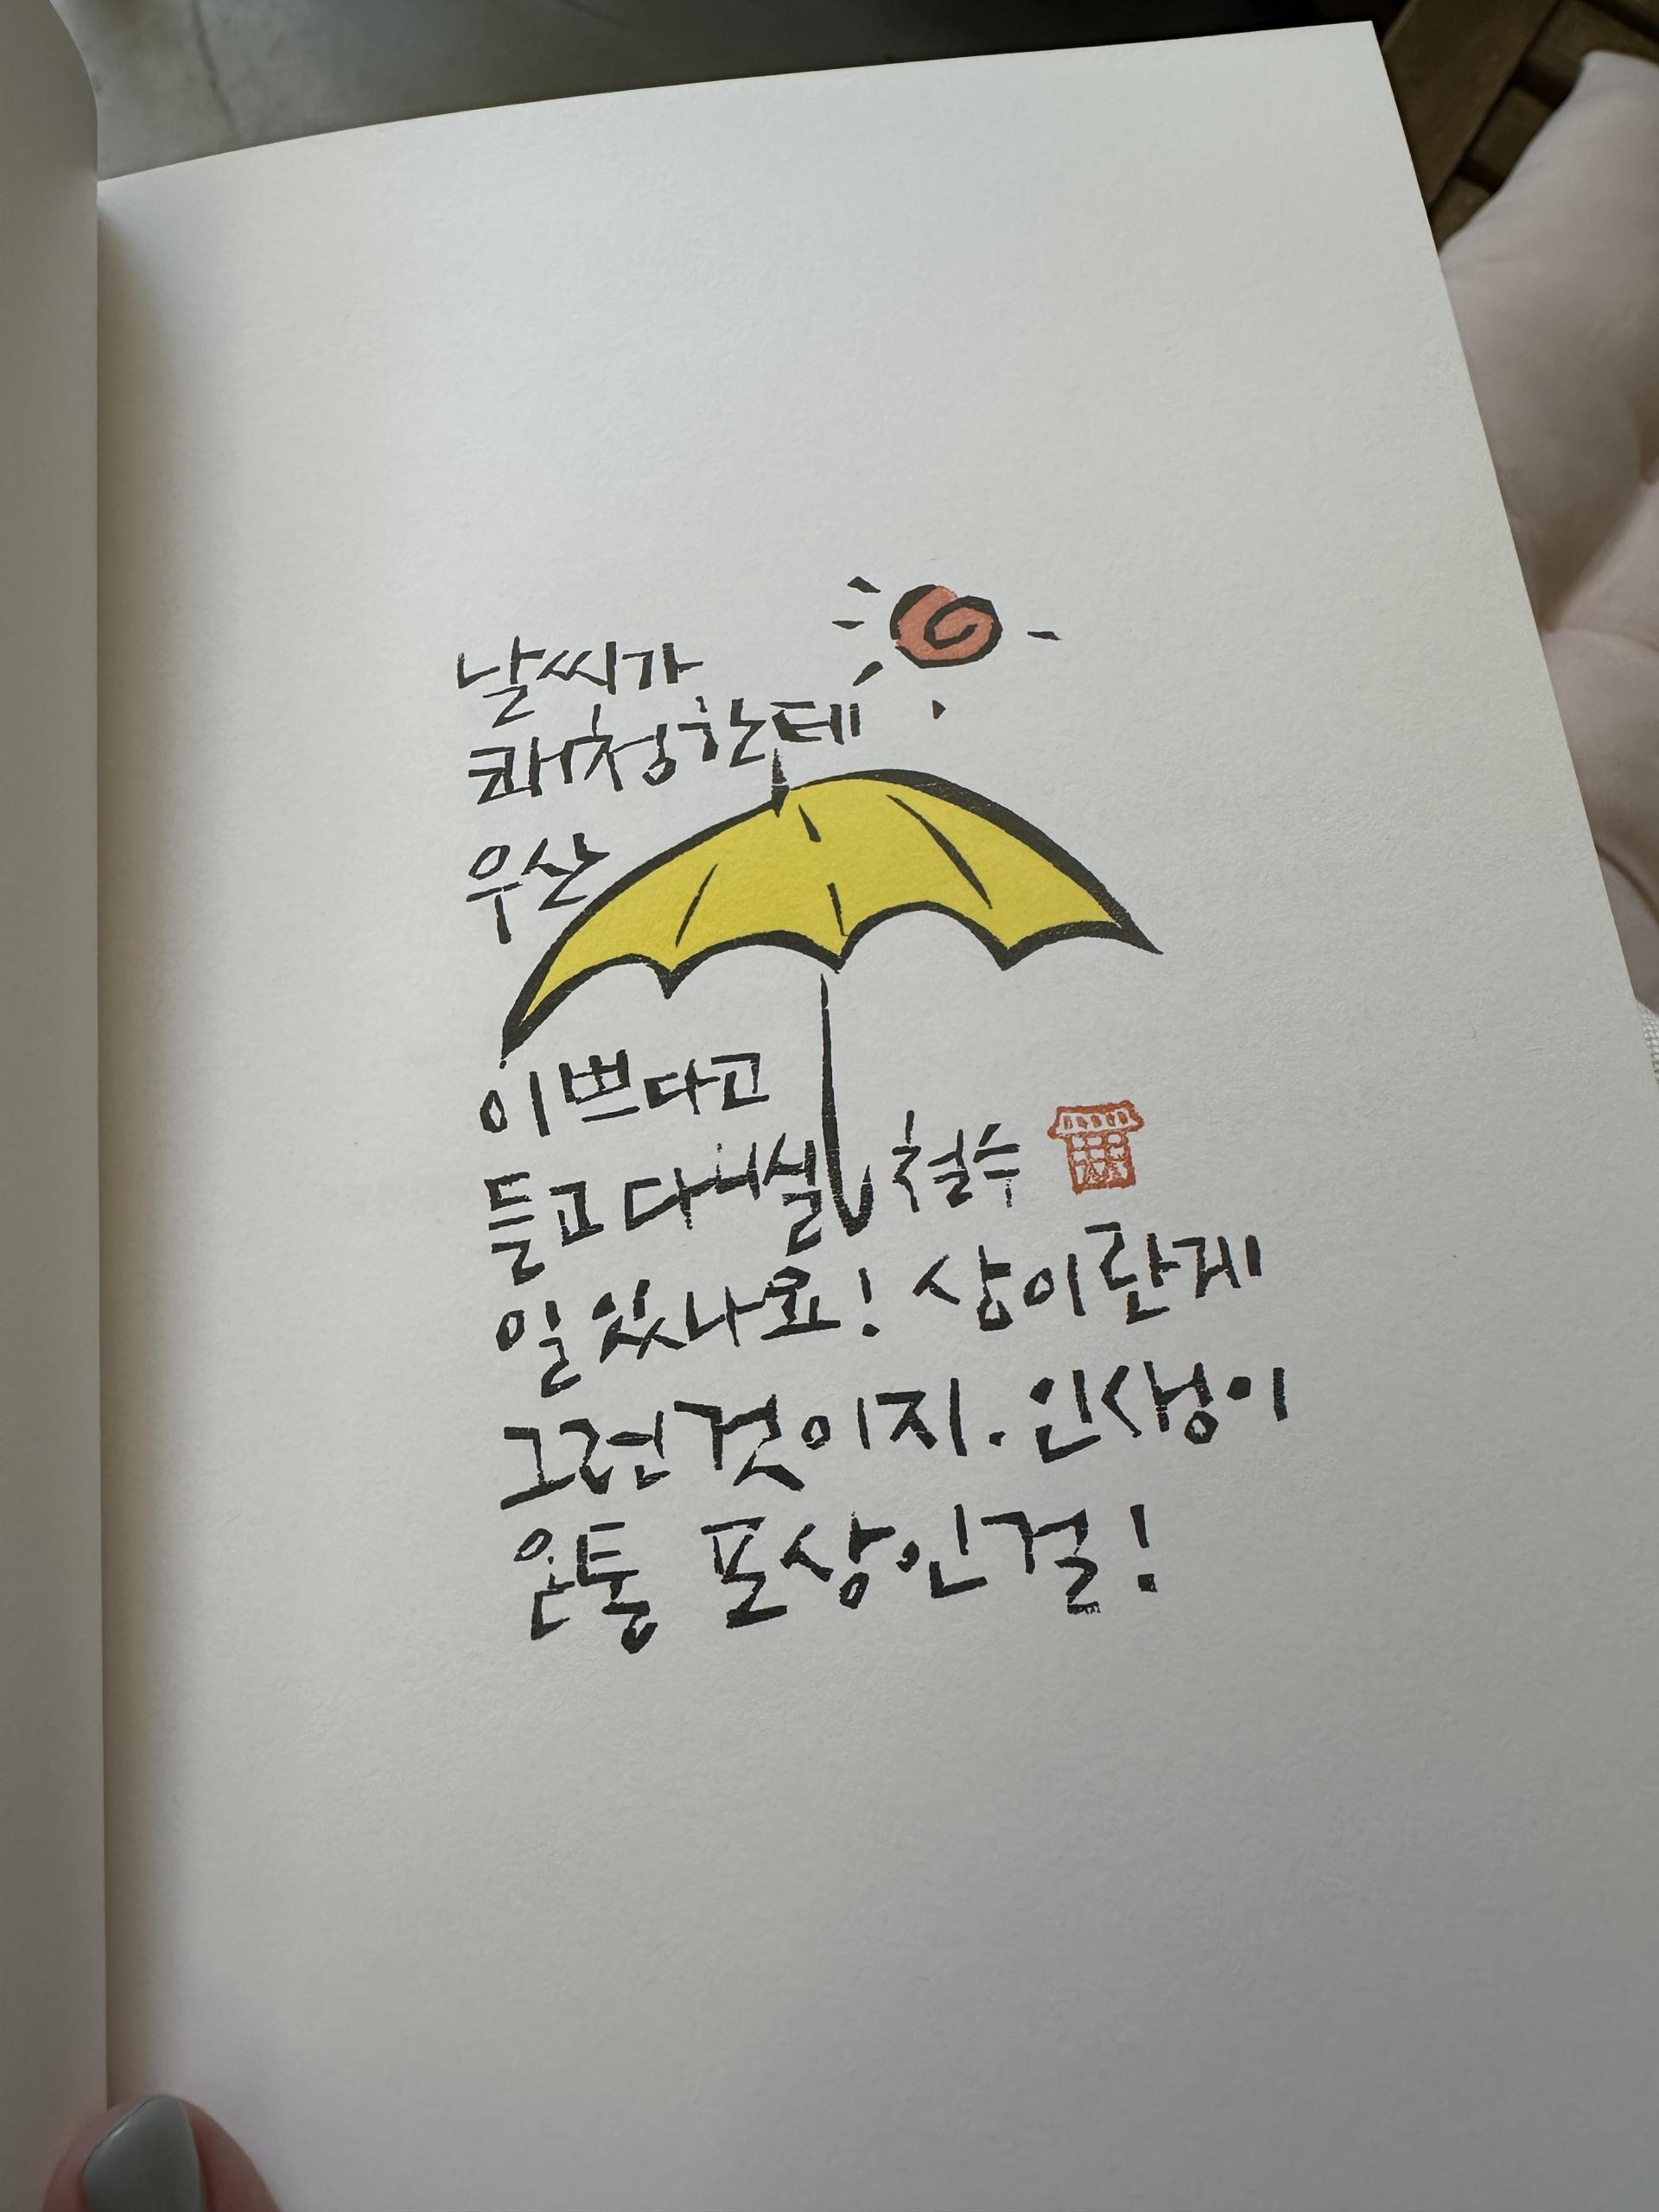 날씨가
쾌청한데
우산
이쁘다고
들고다니실
일있나요! 상이란게
그런것이지. 인생이
온통 포상인걸!
철수